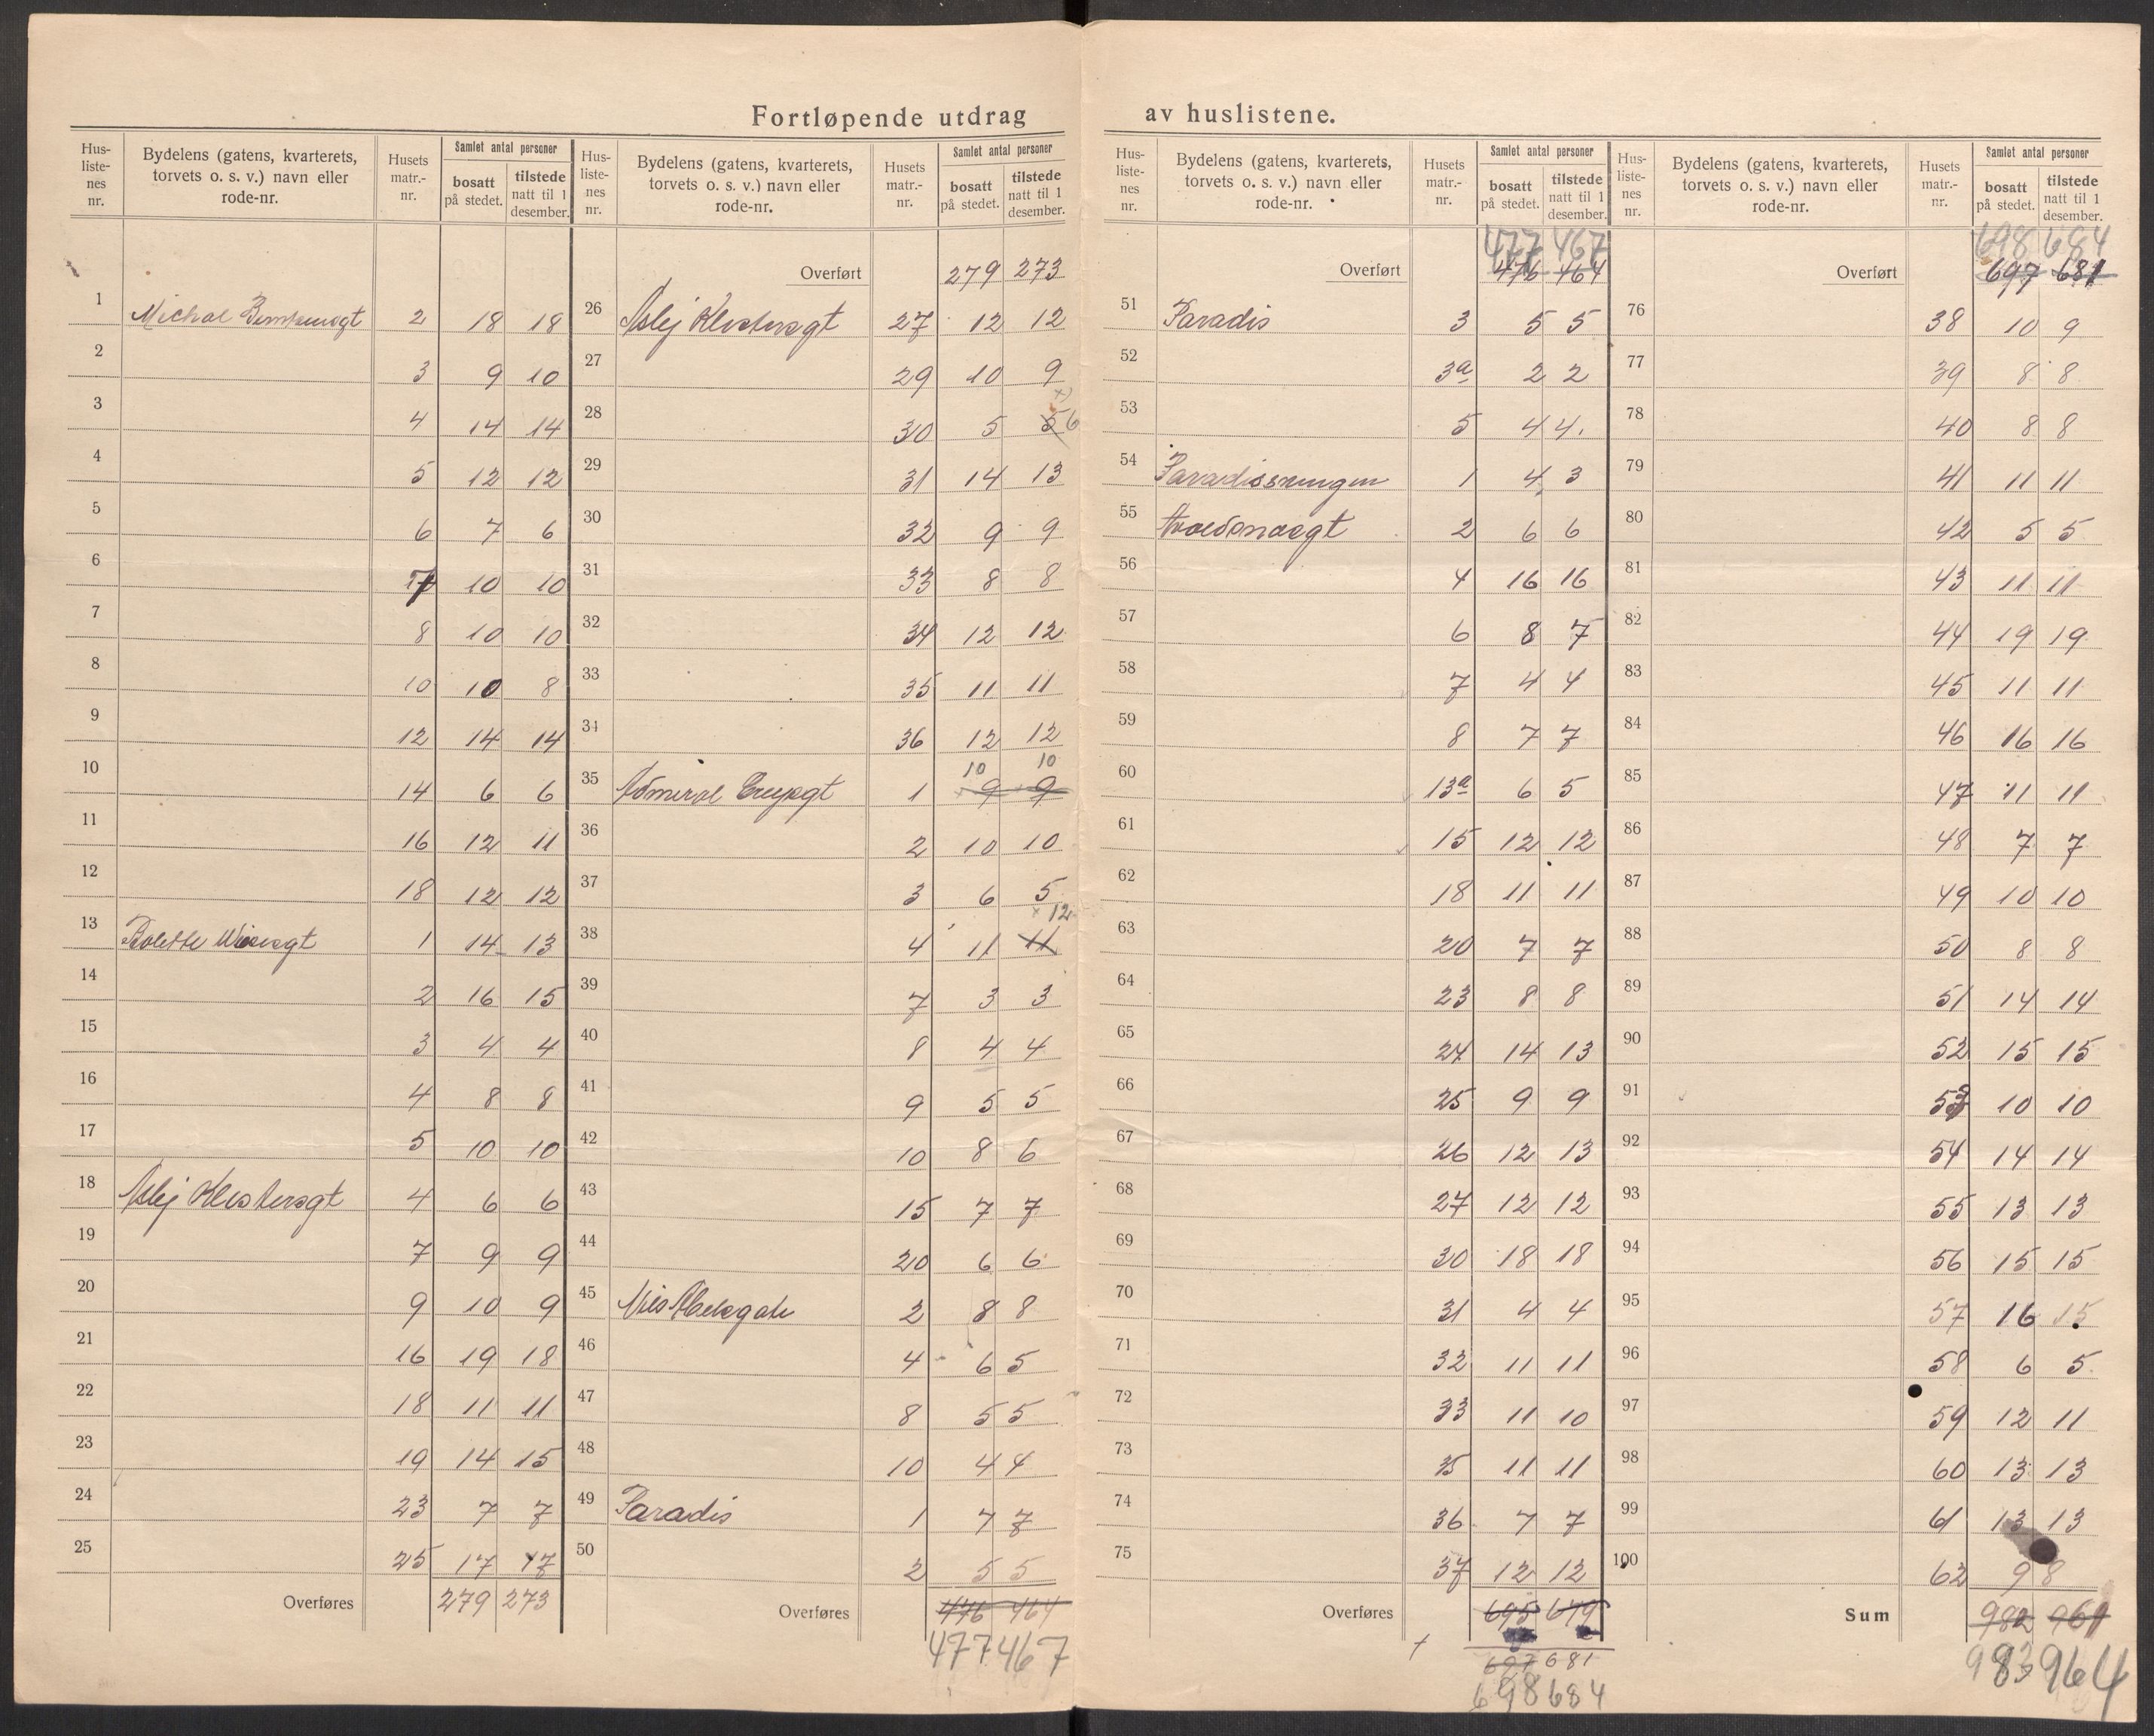 Fortløpende utdrag av huslistene.
Hus-listenes nr. Bydelens (gatens, kvarterets, torvets o. s. v.) navn eller rode-nr. Husets matr.-nr. Samlet antal personer bosatt på stedet. tilstede natt til 1 desember.
1 Michal 2 18 18
2 3 9 10
3 4 14 14
4 5 12 12
5 6 7 6
6 7 10 10
7 8 10 10
8 10 10 8
9 12 14 14
10 14 6 6
11 16 12 11
12 18 12 12
13 Bolette Wiisesgt 1 14 13
14 2 16 15
15 3 4 4
16 4 8 8
17 5 10 10
18 Aslej Klostersgt 4 6 6
19 7 9 9
20 9 10 9
21 16 19 18
22 18 11 11
23 19 14 15
24 23 7 7
25 25 17 17
Overføres 279 273
Hus-listenes nr. Bydelens (gatens, kvarterets, torvets o. s. v.) navn eller rode-nr. Husets matr.-nr. Samlet antal personer bosatt på stedet. tilstede natt til 1 desember.
Overført 279 273
26 Aslej Klostersgt 27 12 12
27 29 10 9
x)
28 30 5 5 6
29 31 14 13
30 32 9 9
31 33 8 8
32 34 12 12
33 35 11 11
34 36 12 12
10 10
35 Admiral Cruysgt 1 9 9
36 2 10 10
37 3 6 5
x 12
38 4 11 11
39 7 3 3
40 8 4 4
41 9 5 5
42 10 8 6
43 15 7 7
44 20 6 6
45 Nils Abelsgate 2 8 8
46 4 6 5
47 8 5 5
48 10 4 4
49 Paradis 1 7 7
50 2 5 5
Overføres 476 464
477 467
Hus-listenes nr. Bydelens (gatens, kvarterets, torvets o. s. v.) navn eller rode-nr. Husets matr.-nr. Samlet antal personer bosatt på stedet. tilstede natt til 1 desember.
477 467
Overført 476 464
51 Paradis 3 5 5
52 3a 2 2
53 5 4 4.
54 1 4 3
55 2 6 6
56 4 16 16
57 6 8 7
58 7 4 4
59 8 7 7
60 13a 6 5
61 15 12 12
62 18 11 11
63 20 7 7
64 23 8 8
65 24 14 13
66 25 9 9
67 26 12 13
68 27 12 12
69 30 18 18
70 31 4 4
71 32 11 11
72 33 11 10
73 35 11 11
74 36 7 7
75 37 12 12
Overføres 695 679
697 681
698 684
Hus-listenes nr. Bydelens (gatens, kvarterets, torvets o. s. v.) navn eller rode-nr. Husets matr.-nr. Samlet antal personer bosatt på stedet. tilstede natt til 1 desember.
698 684
Overført 697 681
76 38 10 9
77 39 8 8
78 40 8 8
79 41 11 11
80 42 5 5
81 43 11 11
82 44 19 19
83 45 11 11
84 46 16 16
85 47 11 11
86 48 7 7
87 49 10 10
88 50 8 8
89 51 14 14
90 52 15 15
91 53 10 10
92 54 14 14
93 55 13 13
94 56 15 15
95 57 16 15
96 58 6 5
97 59 12 11
98 60 13 13
99 61 13 13
100 62 9 8
Sum 982 961
983 964